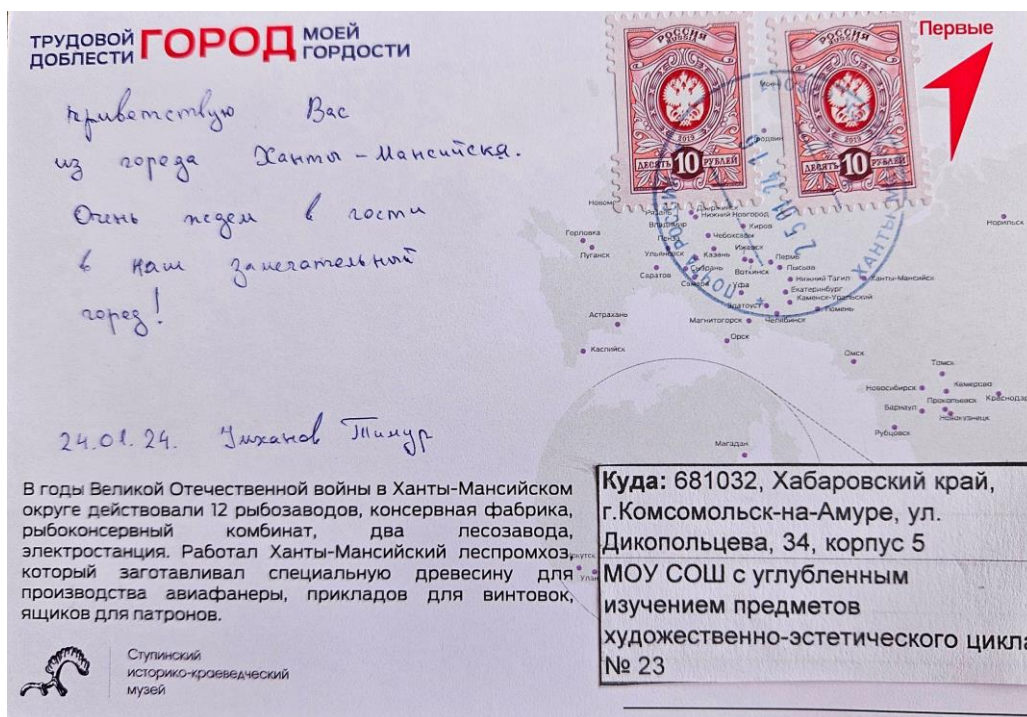 ТРУДОВОЙ ДОБЛЕСТИ ГОРОД МОЕЙ ГОРДОСТИ
Первые
РОССИЯ
RUSSIA
2019
ДЕСЯТЬ 10 РУБЛЕЙ
РОССИЯ
RUSSIA
2019
ДЕСЯТЬ 10 РУБЛЕЙ
ПОЧТА РОССИИ
ХАНТЫ
приветствую Вас
из города Ханты-Мансийска.
Очень ждем в гости
в наш замечательный
город!
24.01.24. Тимур
Рязань
Дзержинск
Нижний Новгород
Владимир
Киров
Пенза
Чебоксары
Горловка
Луганск
Ульяновск
Казань
Ижевск
Пермь
Саратов
Сызрань
Воткинск
Лысьва
Самара
Уфа
Нижний Тагил
Ханты-Мансийск
Екатеринбург
Каменск-Уральский
Златоуст
Тюмень
Астрахань
Магнитогорск
Челябинск
Орск
Каспийск
Норильск
Омск
Томск
Новосибирск
Кемерово
Барнаул
Прокопьевск
Краснояр
Новокузнецк
Рубцовск
Магадан
В годы Великой Отечественной войны в Ханты-Мансийском
округе действовали 12 рыбозаводов, консервная фабрика,
рыбоконсервный комбинат, два лесозавода,
электростанция. Работал Ханты-Мансийский леспромхоз,
который заготавливал специальную древесину для
производства авиафанеры, прикладов для винтовок,
ящиков для патронов.
Ступинский
историко-краеведческий
музей
Куда: 681032, Хабаровский край,
г.Комсомольск-на-Амуре, ул.
Дикопольцева, 34, корпус 5
МОУ СОШ с углубленным
изучением предметов
художественно-эстетического цикла
№ 23